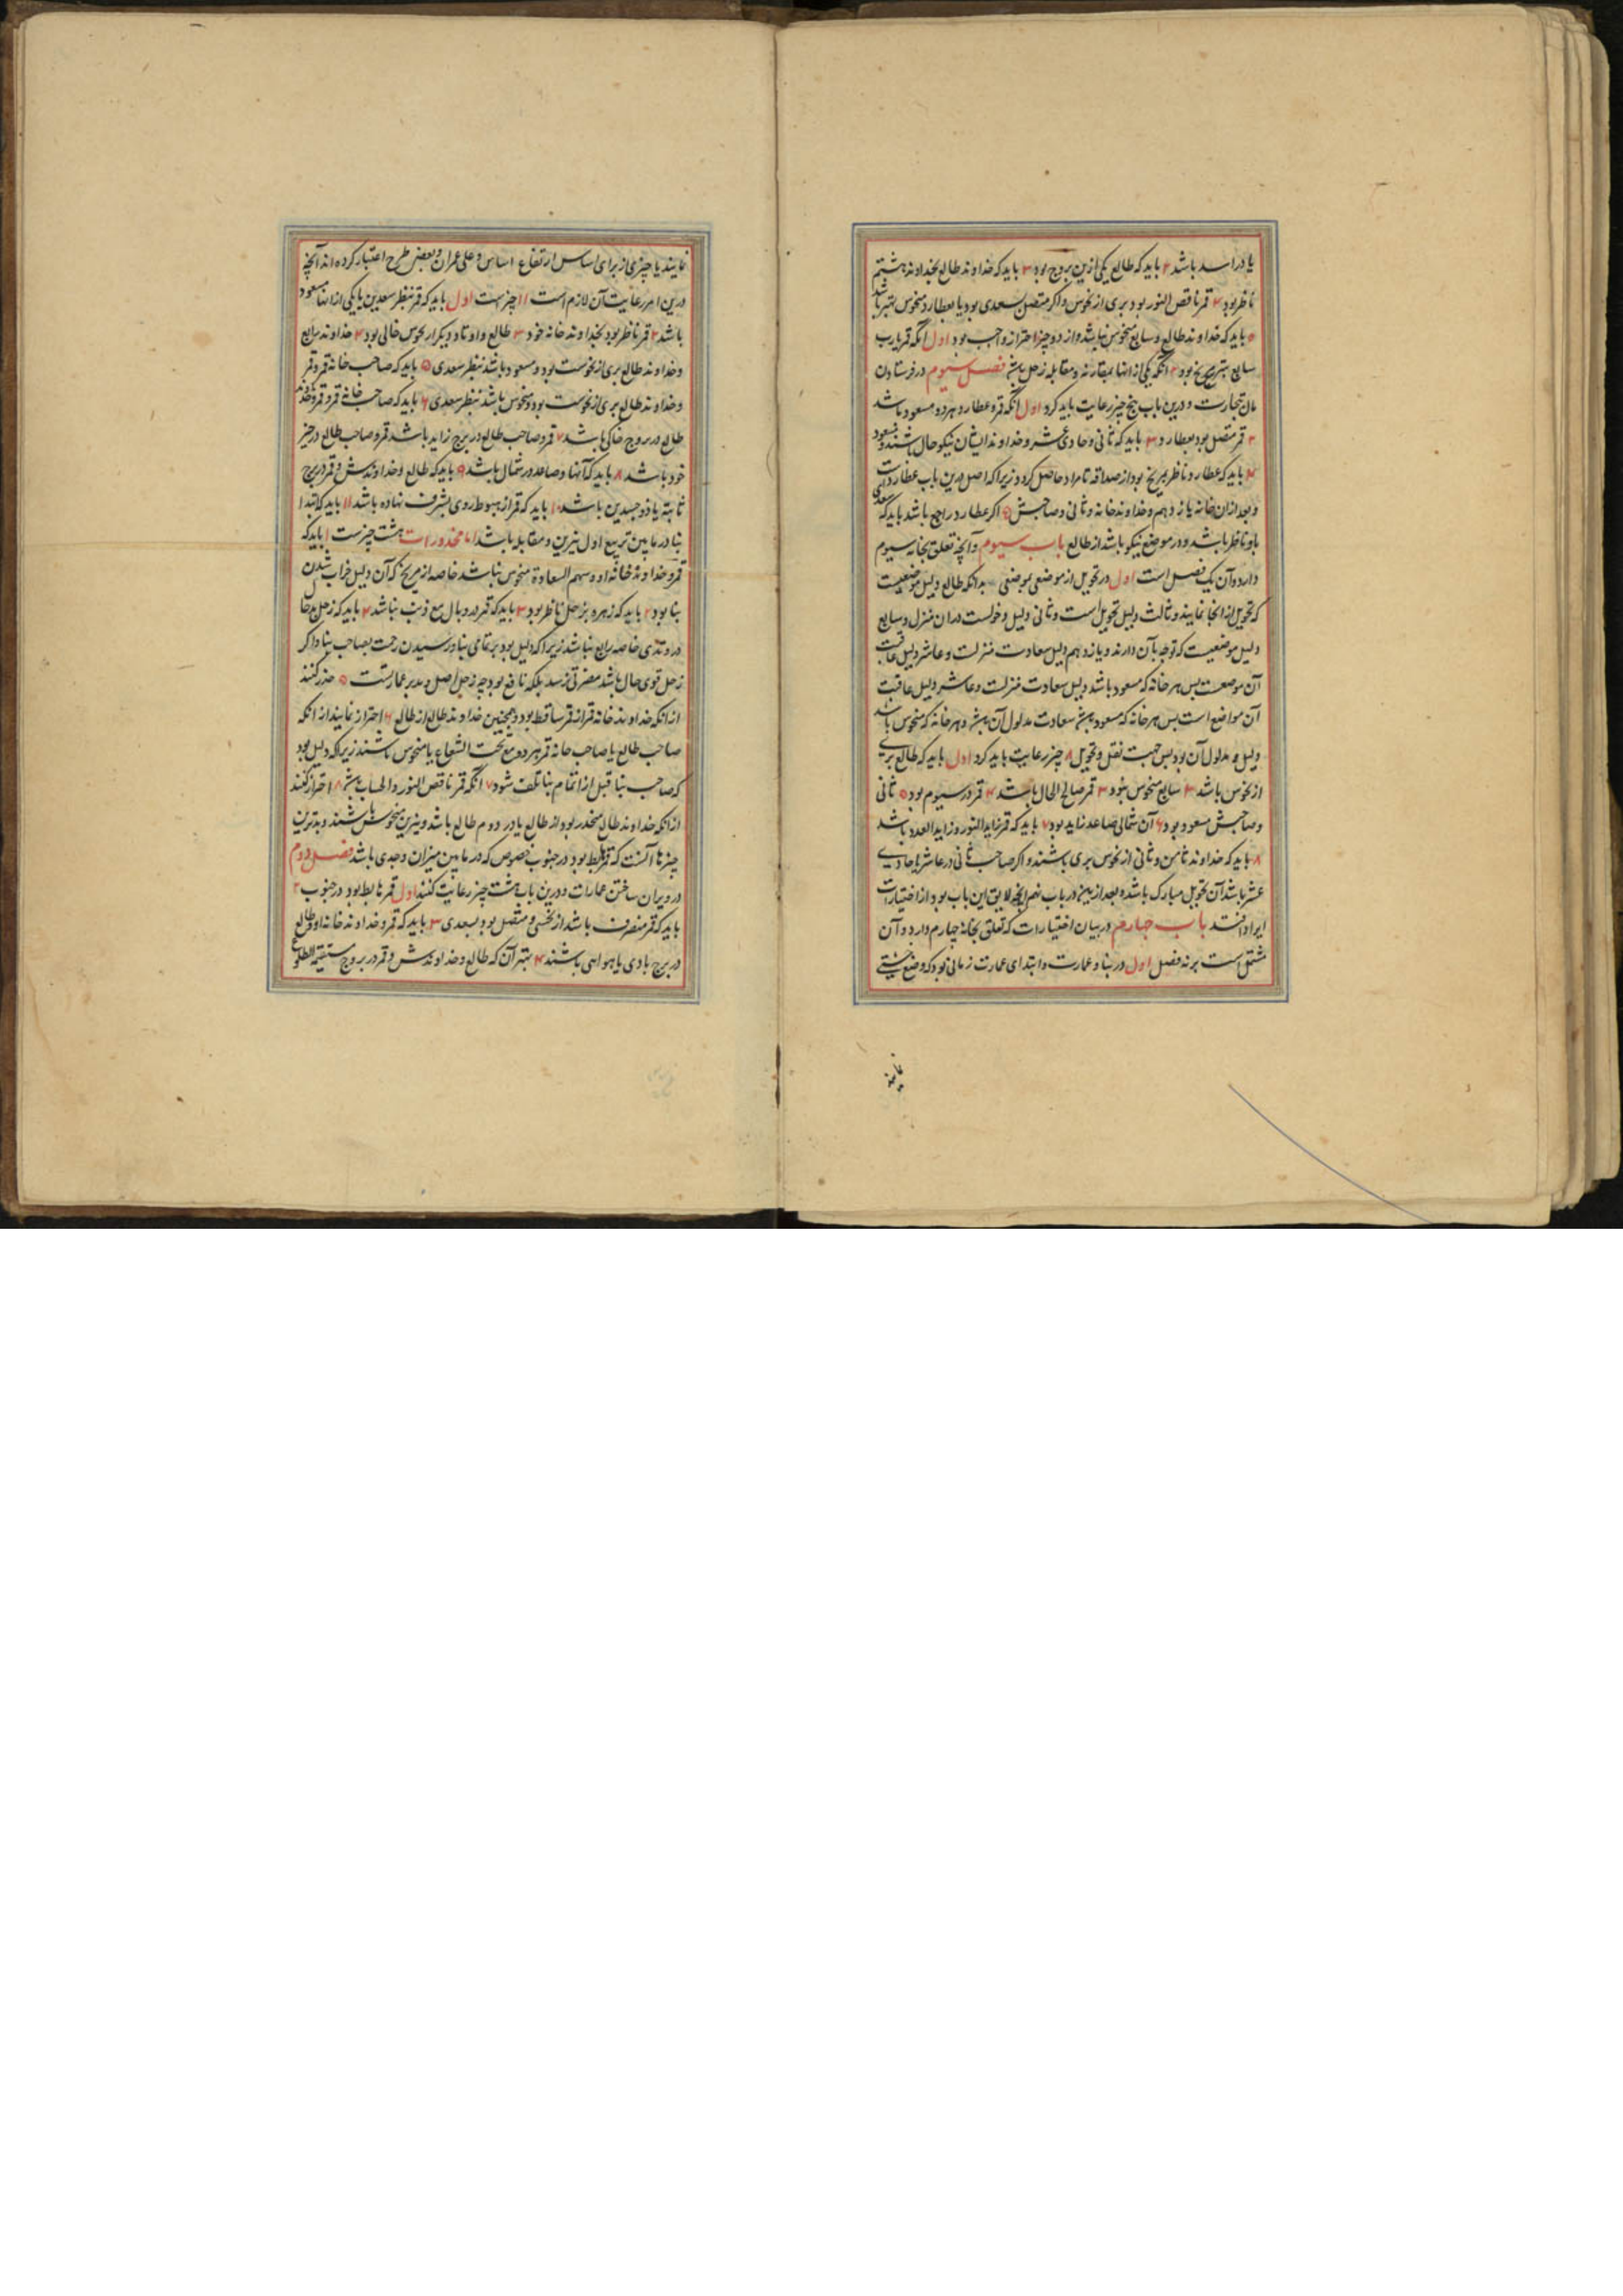 یا در اسد باشد ۲ باید که طالع یکی ازین بروج بود ۳ باید که خداوند طالع بخداوند هشتم
ناظر بود ۴ قمر ناقص النور بود بری از نحوس و اگر متصل بسعدی بود یا بعطارد منحوس بهتر باشد
۵ باید که خداوند طالع و سابع منحوس نباشد و از دو چیز احتراز واجب بود اول آنکه قمر یا رب
سابع بتربیع بود ۲ آنکه یکی از آنها بمقارنه و مقابله زحل باشد فصل سیوم در فرستادن
مال تجارت و درین باب پنج چیز رعایت باید کرد اول آنکه قمر و عطارد هر دو مسعود باشد
۲ قمر متصل بود بعطارد ۳ باید که ثانی و حادی عشر و خداوند ایشان نیکو حال باشند و مسعود
۴ باید که عطارد ناظر بمریخ بود از صداقه تا مراد حاصل گردد زیرا که اصل درین باب عطارد است
و بعد از ان خانه یازدهم و خداوند خانه و ثانی و صاحبش ۵ اگر عطارد راجع باشد باید که سعدی
باو ناظر باشد و در موضع نیکو باشد از طالع باب سیوم و آنچه تعلق بخانه سیوم
دارد و آن یک فصل است اول در تحویل از موضعی بموضعی بدانکه طالع دلیل موضعیست
که تحویل از انجا نمایند و ثالث دلیل تحویل است و ثانی دلیل دخولست در ان منزل و سابع
دلیل موضعیست که توجه بآن دارند و یازدهم دلیل سعادت منزلت و عاشر دلیل عاقبت
آن موضعست پس هر خانه که مسعود باشد دلیل سعادت منزلت و عاشر دلیل عاقبت
آن مواضع است پس هر خانه که مسعود باشد سعادت مدلول آن باشد و هر خانه که منحوس باشد
دلیل مدلول آن بود پس جهت نقل و تحویل ۸ چیز رعایت باید کرد اول باید که طالع بری
از نحوس باشد ۲ سابع منحوس نبود ۳ قمر صالح الحال باشد ۴ قمر در سیوم بود ۵ ثانی
و صاحبش مسعود بود ۶ آن شمالی صاعد زاید بود ۷ باید که قمر زاید النور و زاید العدد باشد
۸ باید که خداوند ثامن و ثانی از نحوس بری باشند و اگر صاحب ثانی در عاشر یا حادی
عشر باشد آن تحویل مبارک باشد و بعد ازین در باب نهم آنچه لایق این باب بود از اختیارات
ایراد افتد باب چهارم در بیان اختیارات که تعلق بخانه چهارم دارد و آن
مشتمل است بر نه فصل اول در بنا و عمارت و ابتدای عمارت زمانی بود که وضع خشتی
نمایند
نمایند یا چیزی از برای اساس ارتفاع اساس و علی عمران و بعضی طرح اعتبار کرده اند آنچه
درین امر رعایت آن لازم است ۱۱ چیزست اول باید که قمر بنظر سعدین یا یکی از آنها مسعود
باشد ۲ قمر ناظر بود بخداوند خانه خود ۳ طالع و اوتاد دیگر از نحوس خالی بود ۴ خداوند رابع
و خداوند طالع بری از نحوست بود و مسعود باشد بنظر سعدی ۵ باید که صاحب خانه قمر و قمر
و خداوند طالع بری از نحوست بود و منحوس باشد بنظر سعدی ۶ باید که صاحب خانه قمر و قمر و خداوند
طالع در بروج خاکی باشد ۷ قمر و صاحب طالع در برج زاید باشد قمر و صاحب طالع در حیز
خود باشد ۸ باید که آنها و صاعد در شمال باشد ۹ باید که طالع و خداوندش و قمر در برج
ثابته یا ذو جسدین باشد ۱۰ باید که قمر از هبوط روی بشرف نهاده باشد ۱۱ باید که ابتدا
بنا در مابین تربیع اول نیرین و مقابله باشد اما محذورات هشت چیزست ۱ باید که
قمر و خداوند خانه او و سهم السعادة منحوس نباشد خاصه از مریخ که آن دلیل خراب شدن
بنا بود ۲ باید که زهره بزحل ناظر بود ۳ باید که قمر در وبال مع ذنب نباشد ۴ باید که زحل بدحال
در وتدی خاصه رابع نباشد زیرا که دلیل بود بر تمامی بنا و رسیدن زحمت بصاحب بنا و اگر
زحل قوی حال باشد مضرتی نرسد بلکه نافع بود چه زحل اصل و مدبر عمارتست ۵ حذر کنند
از انکه خداوند خانه قمر از قمر ساقط بود و همچنین خداوند طالع از طالع ۶ احتراز نمایند از انکه
صاحب طالع یا صاحب خانه قمر هر دو مع تحت الشعاع یا منحوس باشند زیرا که دلیل بود
که صاحب بنا قبل از اتمام بنا تلف شود ۷ انکه قمر ناقص النور و الحساب باشد ۸ احتراز کنند
از انکه خداوند طالع منحدر بود از طالع یا در دوم طالع باشد و نیرین منحوس باشند و بدترین
چیزها آنست که قمر هابط بود در جنوب خصوص که در مابین میزان و جدی باشد فصل دوم
در ویران ساختن عمارات و درین باب هشت چیز رعایت کنند اول قمر هابط بود در جنوب ۲
باید که قمر منصرف باشد از نحسی و متصل بود بسعدی ۳ باید که قمر و خداوند خانه او و طالع
در برج بادی یا هوایی باشند ۴ بهتر آن که طالع و خداوندش و قمر در بروج مستقیمة الطلوع